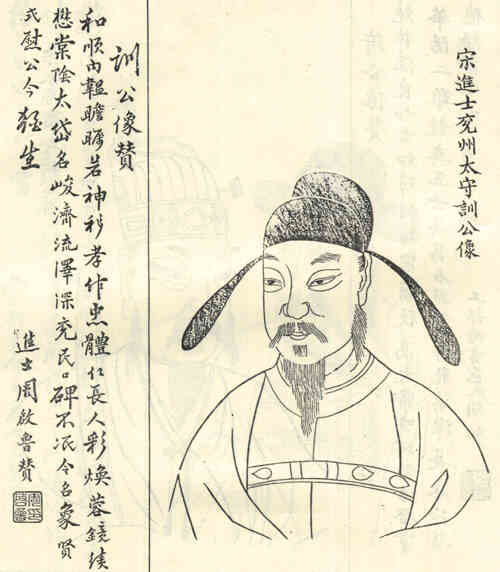 宋進士兖州太守訓公像
訓公像赞
和順內韞瞻矚若神移孝作忠體仁長人彩煥蓉鏡績
懋棠陰太岱名峻濟流澤深兖民口碑不泯令名象賢
式慰公今猶生
進士周啟魯赞